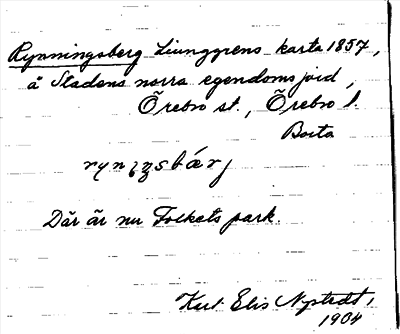 Rynningsberg Ljunggrens karta 1857,
å Stadens norra egendomsjord,
Örebro st., Örebro l.
Borta
Där är nu Folkets park.
Elis Nystedt,
1904